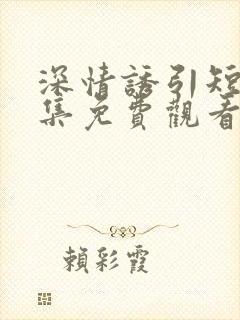 深情誘引短
集免費觀看
賴彩霞